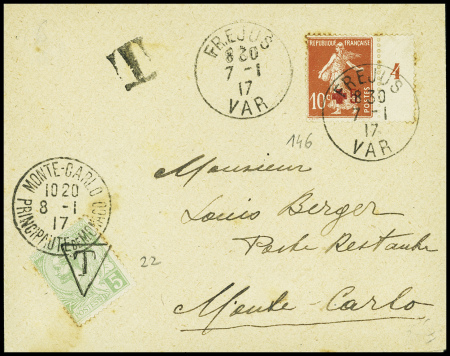 T
FREJUS
8 20
7 - 1
17
VAR
REPUBLIQUE FRANÇAISE
10c
POSTES
4
FREJUS
8 20
7 - 1
17
VAR
146
Monsieur
Louis Berger
Poste Restante
Monte-Carlo
MONTE-CARLO
10 20
8 - 1
17
PRINCIPAUTE DE MONACO
T
5
22